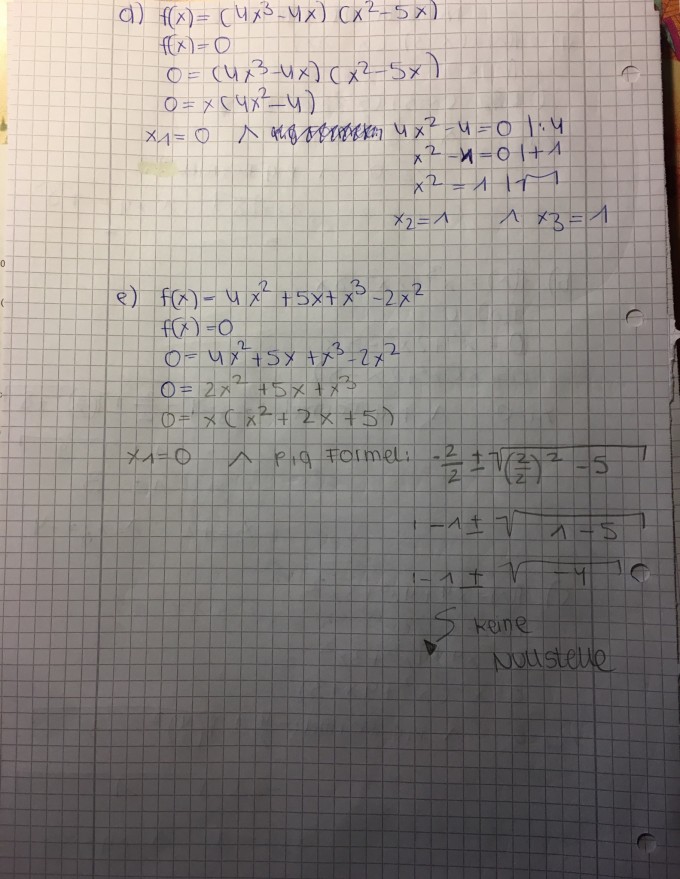 d) f(x) = (4x³-4x) (x²-5x)
f(x)=0
0 = (4x³-4x) (x²-5x)
0 = x(4x²-4)
x1=0 ∧ 4x²-4=0 |:4
x²-1=0 |+1
x²=1 |√
x2=1 ∧ x3=1
e) f(x) = 4x²+5x+x³-2x²
f(x)=0
0=4x²+5x+x³-2x²
0=2x²+5x+x³
0=x(x²+2x+5)
x1=0 ∧ p,q Formel: -2/2 ± √(2/2)²-5
-1 ± √1-5
-1 ± √-4
keine
Nullstelle